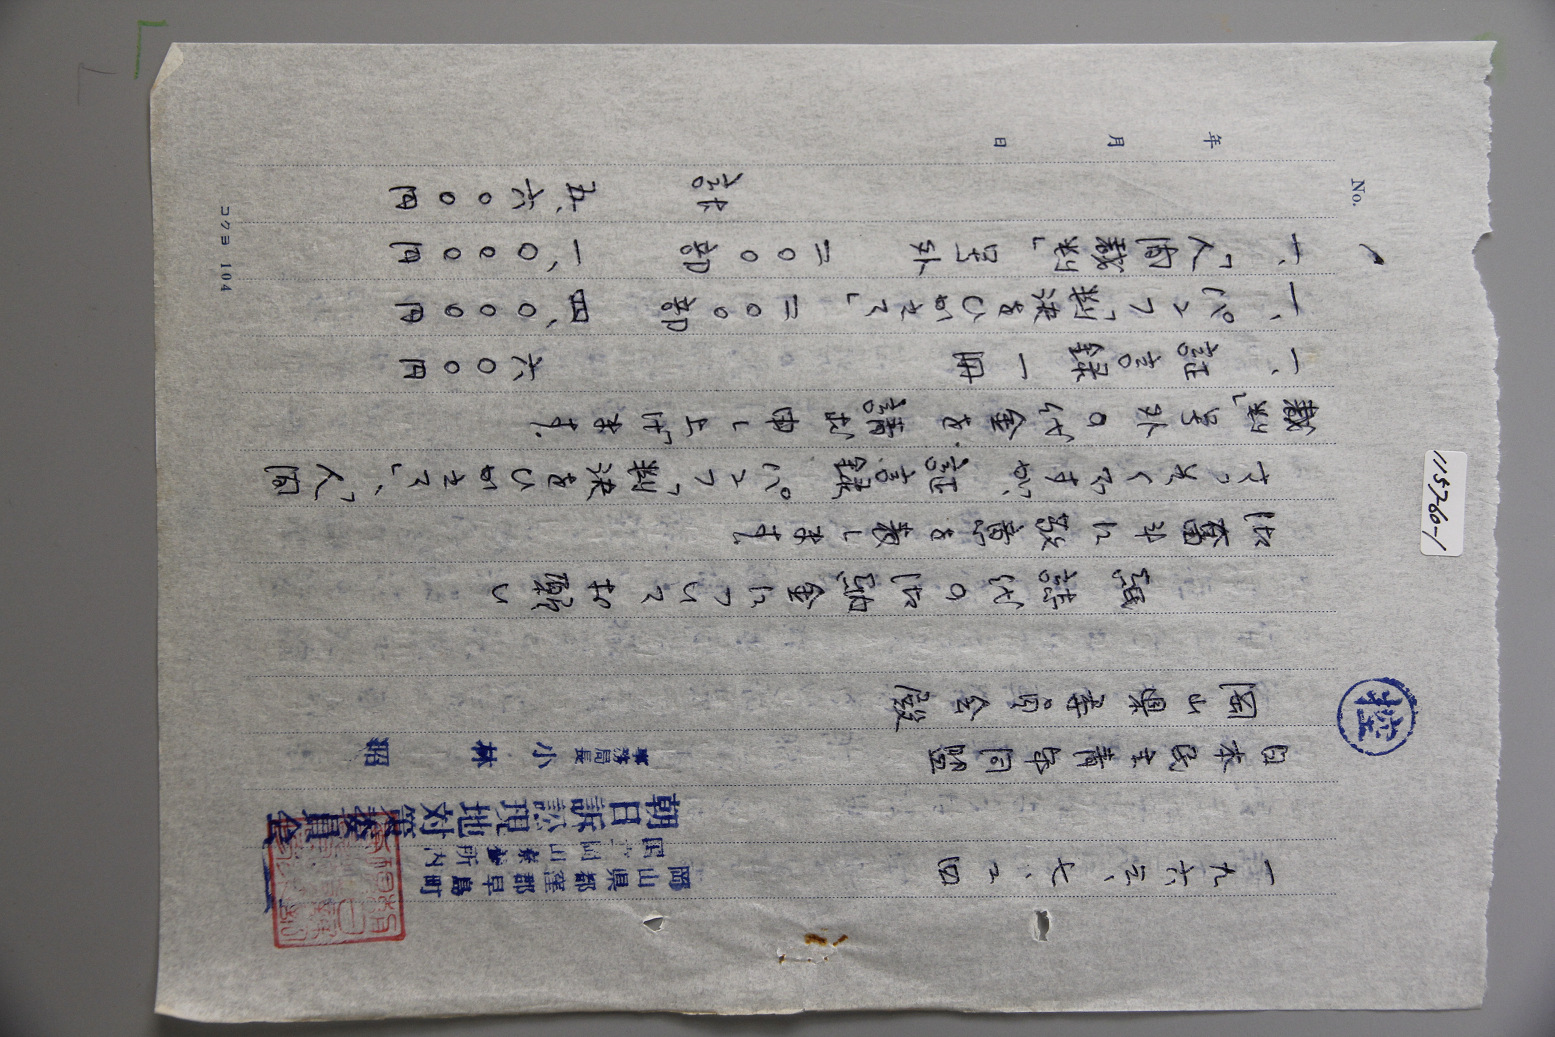 一九六三、七、二四
岡山県都窪郡早島町
国立岡山療養所内
朝日訴訟現地対策委員会
事務局長 小林 昭
日本民主青年同盟
岡山県委員会殿
代の 金についてお願い
御奮斗に敬意を表します。
さっそくですが、証言録 パンフ「判決をひかえて」、「人間
裁判」号外の代金を請求申し上げます。
一、証言録 一冊 六〇〇円
一、パンフ「判決をひかえて」 二〇〇部 四、〇〇〇円
一、「人間裁判」号外 二〇〇部 一、〇〇〇円
計 五、六〇〇円
控
No.
年 月 日
コクヨ 104
115760-1